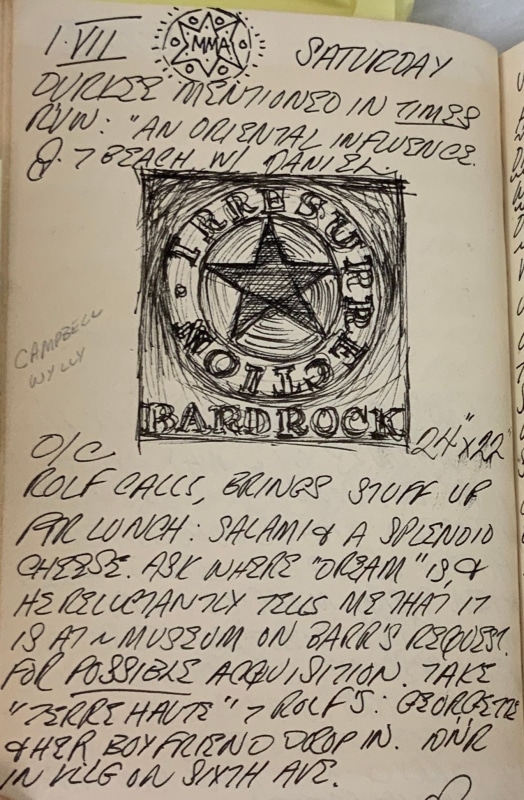 1·VII
MMA
SATURDAY
DURKEE MENTIONED IN TIMES
RVW: "AN ORIENTAL INFLUENCE.
7 BEACH W/ DANIEL.
·IRRESURRECTION
BARDROCK
CAMPBELL
WYLLY
O/C
24" x 22"
ROLF CALLS, BRINGS STUFF UP
FOR LUNCH: SALAMI & A SPLENDID
CHEESE. ASK WHERE "DREAM" IS, &
HE RELUCTANTLY TELLS ME THAT IT
IS AT ~ MUSEUM ON BARR'S REQUEST.
FOR POSSIBLE ACQUISITION. TAKE
"TERRE HAUTE" 7 ROLF'S: GEORGETTE
& HER BOYFRIEND DROP IN. DNR
IN VLLG ON SIXTH AVE.